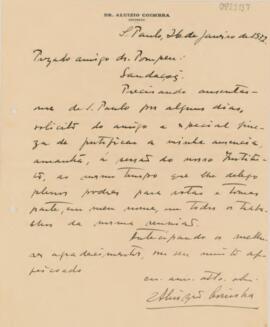 DR. ALUIZIO COIMBRA
S. Paulo, 26 de Janeiro de 19
Prezado amigo dr. Pompeu.
Saudações.
Precisando ausentar-
me de S. Paulo por alguns dias,
solicito do amigo a especial fine-
za de justificar a minha ausencia,
amanhã, á sessão do nosso Institu-
to, ao mesmo tempo que lhe delego
plenos poderes para votar e tomar
parte, em meu nome, em todos os traba-
lhos da mesma reunião.
Antecipando os melho-
res agradecimentos, sou seu muito a-
feiçoado
am. atto. obr.
Aluizio Coimbra